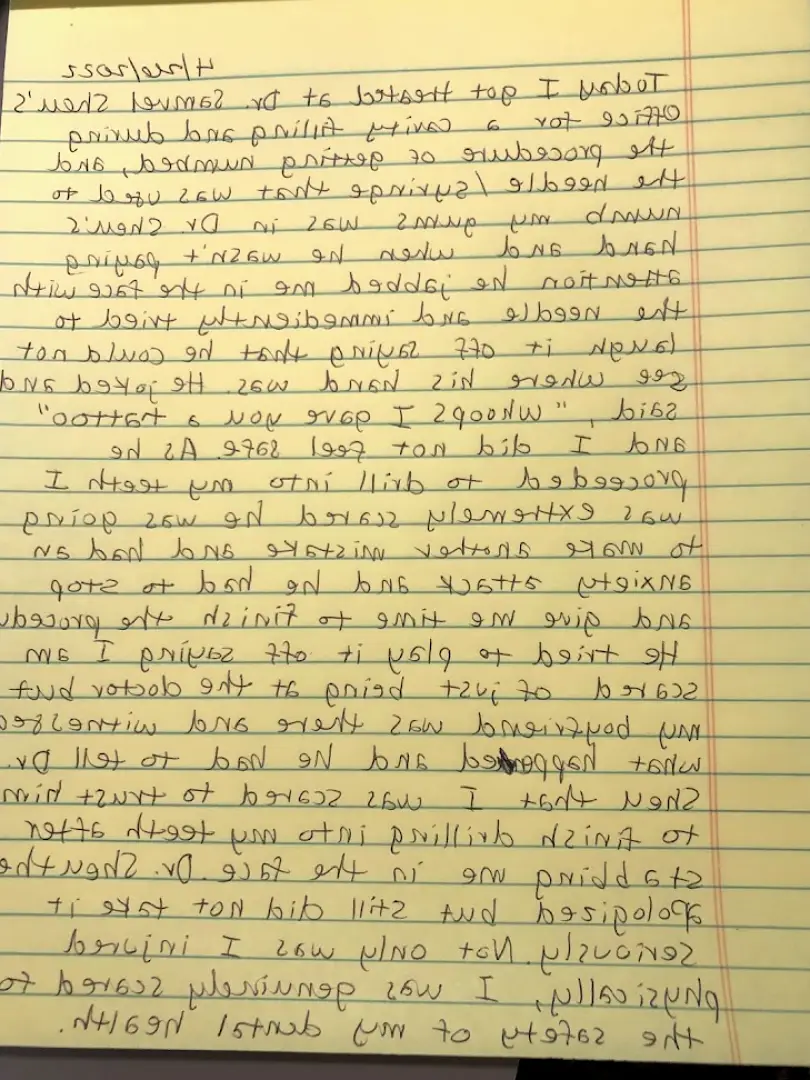 4/26/2022
Today I got treated at Dr. Samuel Shen's
Office for a cavity filling and during
the procedure of getting numbed, and
the needle/syringe that was used to
numb my gums was in Dr Shen's
hand and when he wasn't paying
attention he jabbed me in the face with
the needle and immediently tried to
laugh it off saying that he could not
see where his hand was. He joked and
said, "whoops I gave you a tattoo"
and I did not feel safe. As he
proceeded to drill into my teeth I
was extremely scared he was going
to make another mistake and had an
anxiety attack and he had to stop
and give me time to finish the procedu
He tried to play it off saying I am
scared of just being at the doctor but
my boyfriend was there and witnesses
what happened and he had to tell Dr.
Shen that I was scared to trust him
to finish drilling into my teeth after
stabbing me in the face. Dr. Shen the
apologised but still did not take it
seriously. Not only was I injured
physically, I was genuinely scared fo
the safety of my dental health.